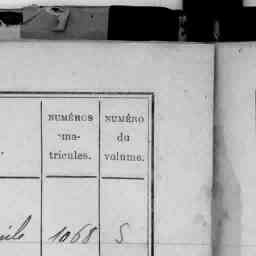 NUMÉROS NUMÉRO
ma- du
tricules. volume.
1068 5